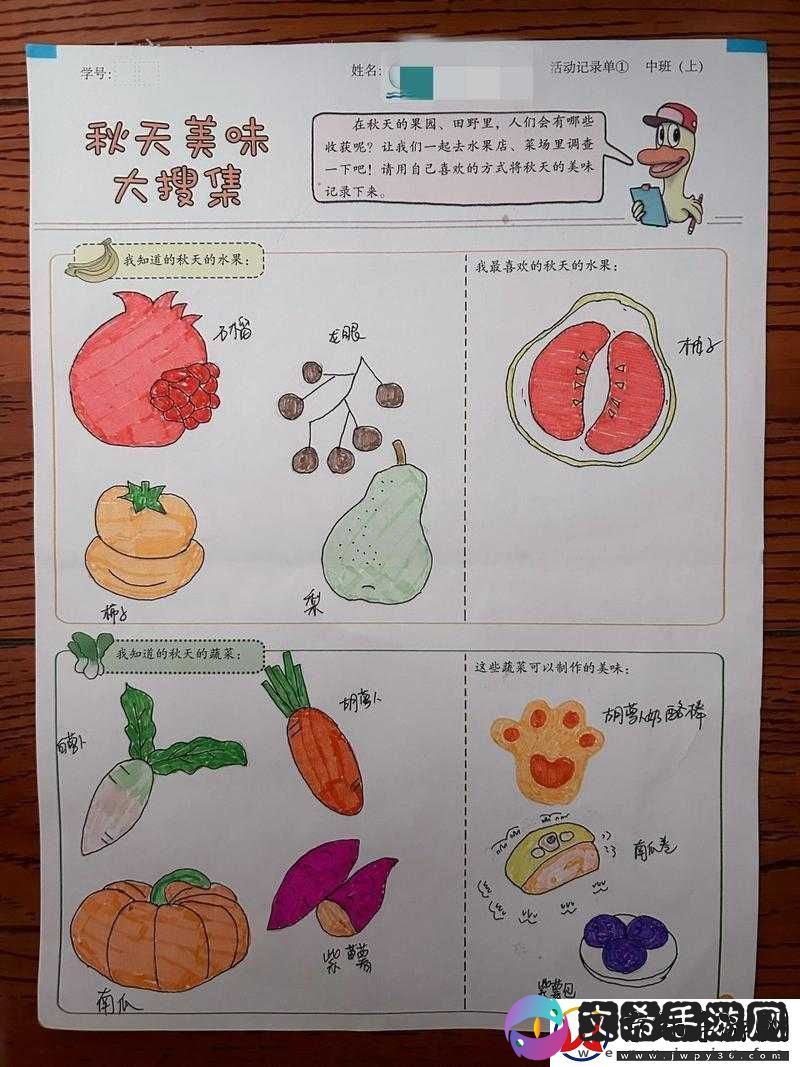 学号:
姓名:
活动记录单① 中班(上)
秋天美味
大搜集
在秋天的果园、田野里,人们会有哪些
收获呢?让我们一起去水果店、菜场里调查
一下吧!请用自己喜欢的方式将秋天的美味
记录下来。
我知道的秋天的水果:
我最喜欢的秋天的水果:
石榴
龙眼
柚子
柿子
梨
我知道的秋天的蔬菜:
这些蔬菜可以制作的美味:
白萝卜
胡萝卜
胡萝卜奶酪棒
南瓜卷
南瓜
紫薯
紫薯包
www.jwpy36.com